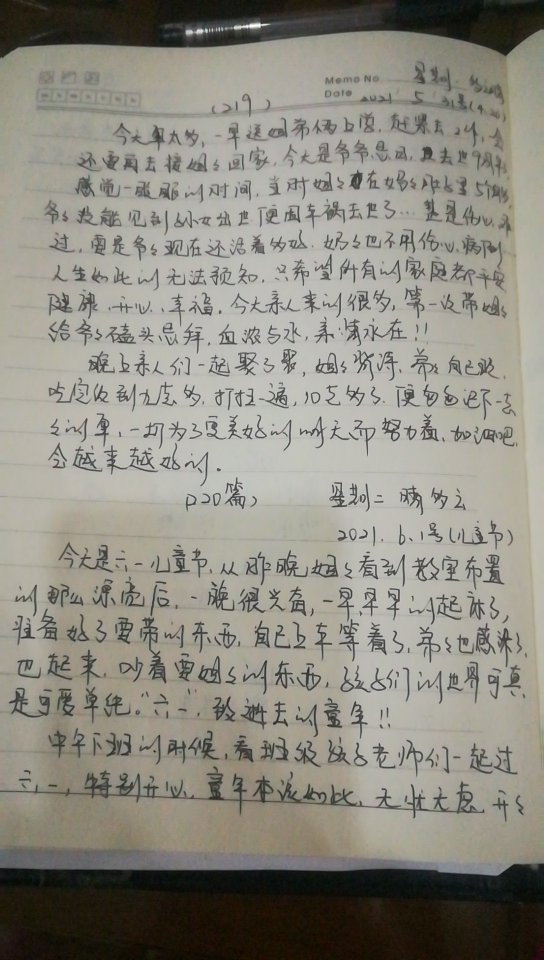 Memo No. 星期一
Date 2021 5 31号(4.20)
(219)
今天事太多,一早送姐弟俩上学,赶集去
还要再去接姐姐回家,今天是爷爷忌日,去世9周年,
感觉一眨眼的时间,当时姐姐在妈妈肚子里5个月
爷爷没能见到孙女出世便因车祸去世了…甚是伤心难
过,要是爷爷现在还活着多好,奶奶也不用伤心病
人生如此的无法预知,只希望所有的家庭都平安
健康、开心、幸福。今天亲人来的很多,第一次带姐姐
给爷爷磕头忌拜,血浓与水,亲情永在!!
晚上亲人们一起聚了聚,姐姐挤得,弟弟自己耍,
吃完收到九点多,打扫一遍,10点多了,便匆匆记下一点
点的事,一切为了更美好的明天而努力着,加油吧,
会越来越好的。
(220篇) 星期二 晴多云
2021.6.1号(儿童节)
今天是六一儿童节,从昨晚姐姐看到教室布置
的那么漂亮后,一晚很兴奋,一早早早的起床了,
准备好了要带的东西,自己上车等着了,弟弟也感染了,
也起来,吵着要姐姐的东西,孩子们的世界可真
是可爱单纯。“六一”,致逝去的童年!!
中午下班的时候,看班级孩子老师们一起过
六.一,特别开心,童年本该如此,无忧无虑,开开